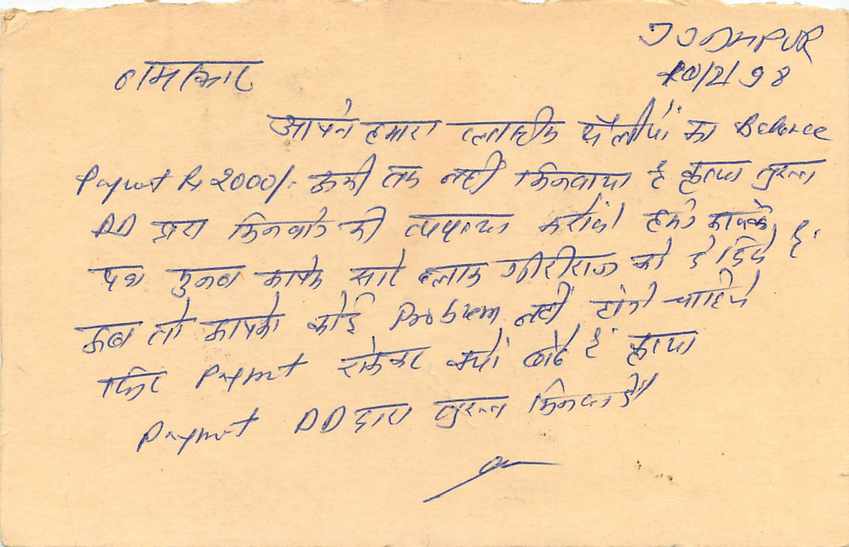 JODHPUR
10/2/98
नमस्कार
आपने हमारा का Balance
Payment Rs 2000/- अभी तक नहीं भिजवाया है कृपया तुरन्त
DD द्वारा भिजवाने की व्यवस्था करावें हमने आपके
सारे ब्लाक गीरीराज को दे दिये हैं
अब तो आपको कोई Problem नहीं होनी चाहिये
फिर Payment रोककर क्यों बैठे हैं कृपया
Payment DD द्वारा तुरन्त भिजवावें